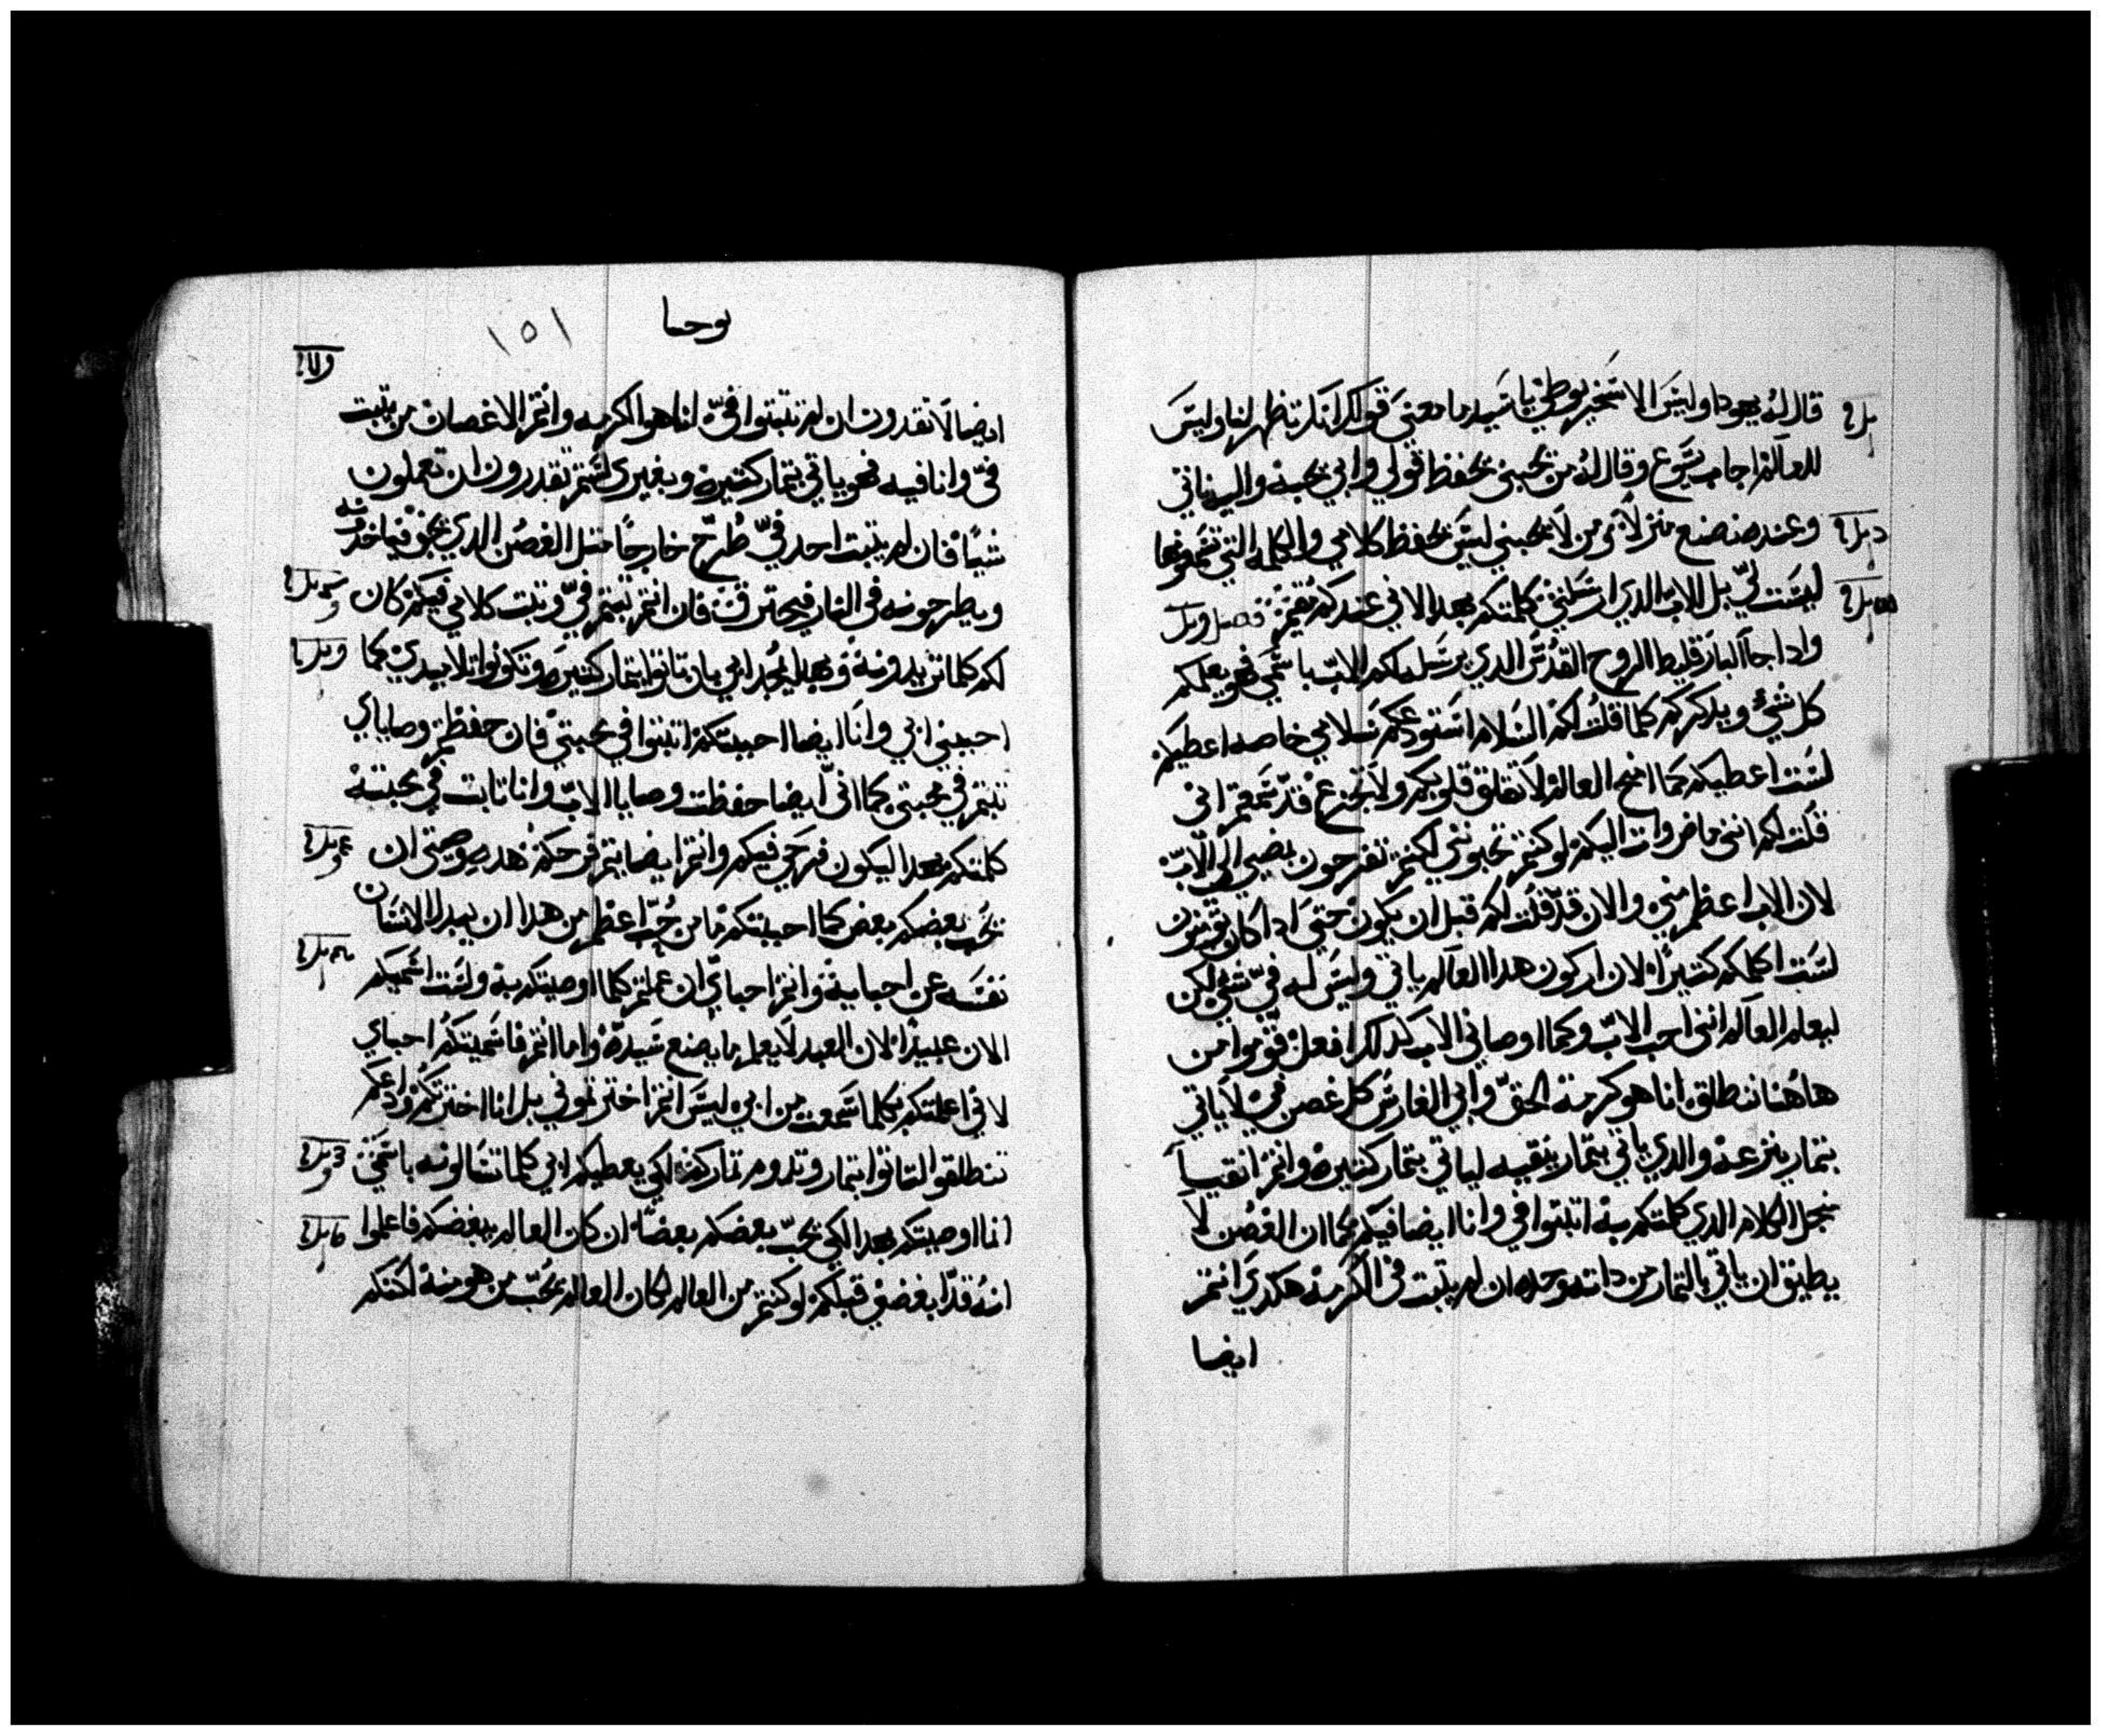 قال له يهودا وليس الاسخريوطي يا سيد ما معني قولك انك تظهر لنا وليس
للعالم اجاب يسوع وقال له من يحبني يحفظ قولي وابي يحبه واليه ناتي
وعنده نصنع منزلاً من لا يحبني ليس يحفظ كلامي والكلمه التي تسمعونها
ليست لي بل للاب الذي ارسلني كلمتكم بهدا لاني عندكم مقيم فصل
وادا جا البارقليط الروح القدس الدي يرسله لكم الاب باسمي فهو يعلمكم
كل شيء ويدكركم كلما قلت لكم السلام استودعكم سلامي خاصه اعطيكم
لست اعطيكم كما امنح العالم لا تقلق قلوبكم ولا تجزع قد سمعتم اني
قلت لكم انني ماض وات اليكم لو كنتم تحبونني لكنتم تفرحون بمضيي الي الاب
لان الاب اعظم مني والان قد قلت لكم قبل ان يكون حتي ادا كان تومنون
لست اكلمكم كتيراً لان اركون هدا العالم ياتي وليس له في شي لكن
ليعلم العالم انني احب الاب وكما اوصاني الاب كدلك افعل قوموا من
هاهنا ننطلق انا هو كرمة الحق وابي الغارس كل غصن في لا ياتي
بتمار ينزعه والدي ياتي بتمار ينقيه لياتي بتمار كتيره وانتم انقيا
من اجل الكلام الدي كلمتكم به اتبتوا في وانا ايضا فيكم كما ان الغصن لا
يطيق ان ياتي بالتمار من داته وحده ان لم يتبت في الكرمة هكدي انتم
ايضا
يوحنا
١٥١
ايضا لا تقدرون ان لم تتبتوا في انا هو الكرمه وانتم الاغصان من يتبت
في وانا فيه فهو ياتي بتمار كتيره وبغيري لستم تقدرون ان تعملون
شياً فان لم يتبت احد في طُرح خارجاً متل الغصن الدي يجف فياخدونه
ويطرحونه في النار فيحترق فان انتم تبتم في وتبت كلامي فيكم كان
لكم كلما تريدونه وبهدا يمجد ابي بان تاتوا بتمار كتيره وتكونوا تلاميدي كما
احبني ابي وانا ايضا احببتكم اتبتوا في محبتي فان حفظتم وصاياي
تبتم في محبتي كما اني ايضا حفظت وصايا الاب وانا تابت في محبته
كلمتكم بهدا ليكون فرحي فيكم وانتم ايضا يتم فرحكم هده وصيتي ان
يحب بعضكم بعض كما احببتكم ما من حُب اعظم من هدا ان يبدل الانسان
نفسه عن احبايه وانتم احباي ان عملتم كلما اوصيتكم به ولست اسميكم
الان عبيداً لان العبد لا يعلم ما يصنع سيده واما انتم فاسميتكم احباي
لاني اعلمتكم بكلما سمعت من ابي ليس انتم اخترتموني بل انا اخترتكم وادعكم
تنطلقوا لتاتوا بتمار وتدوم تماركم لكي يعطيكم ابي كلما تسالونه باسمي
انما اوصيتكم بهدا لكي يحب بعضكم بعضاً ان كان العالم يبغضكم فاعلموا
انه قد ابغضني قبلكم لو كنتم من العالم لكان العالم يحب من هو منه لكنكم